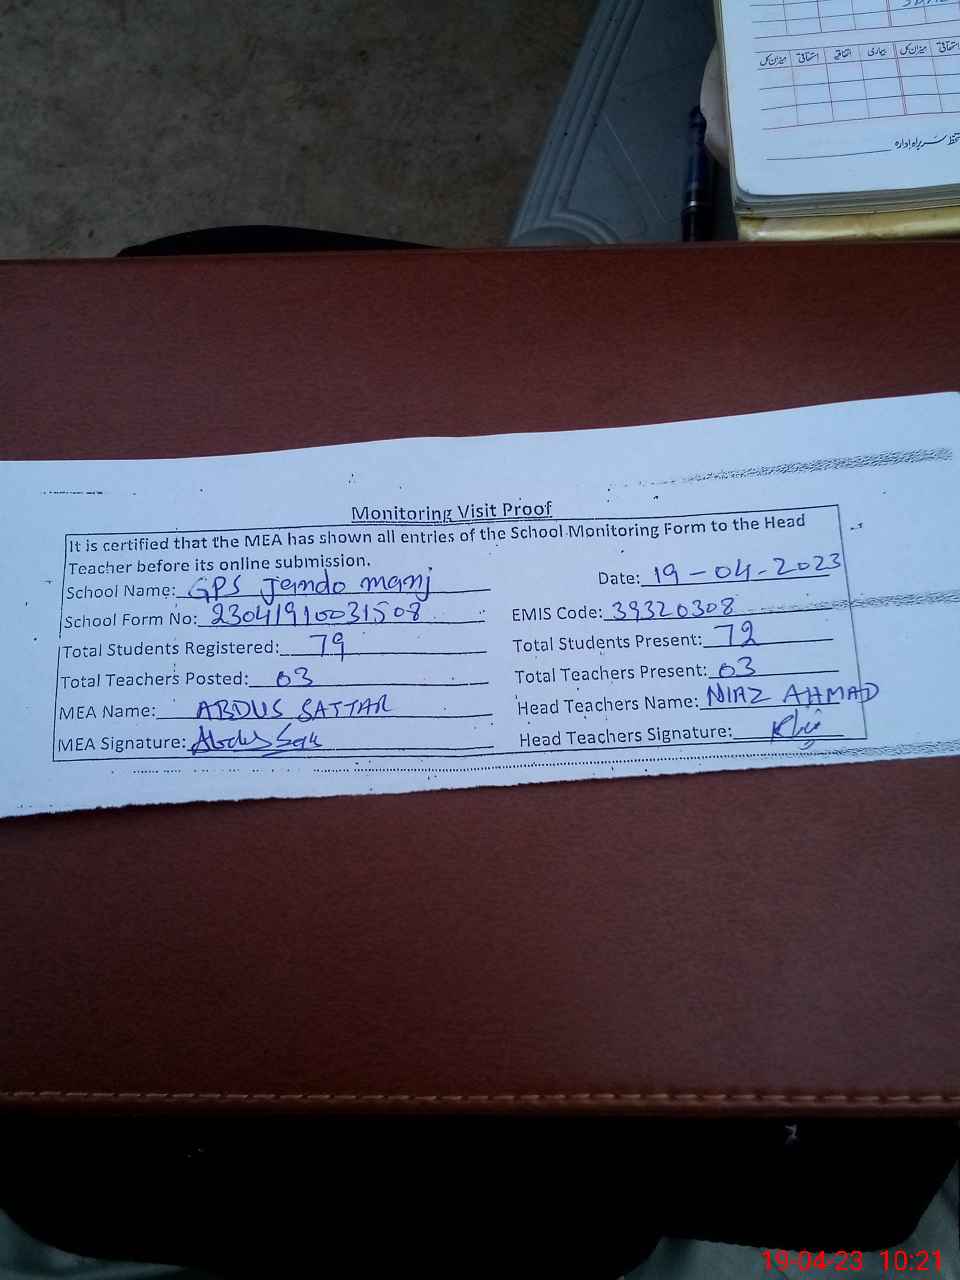 میزان کل اتفاقیہ بیماری میزان کل
سربراہ ادارہ
Monitoring Visit Proof
It is certified that the MEA has shown all entries of the School Monitoring Form to the Head
Teacher before its online submission.
School Name: GPS Jando manj Date: 19-04-2023
School Form No: 23041910031508 EMIS Code: 39320308
Total Students Registered: 79 Total Students Present: 72
Total Teachers Posted: 03 Total Teachers Present: 03
MEA Name: ABDUS SATTAR Head Teachers Name: NIAZ AHMAD
MEA Signature: Head Teachers Signature:
19-04-23 10:21